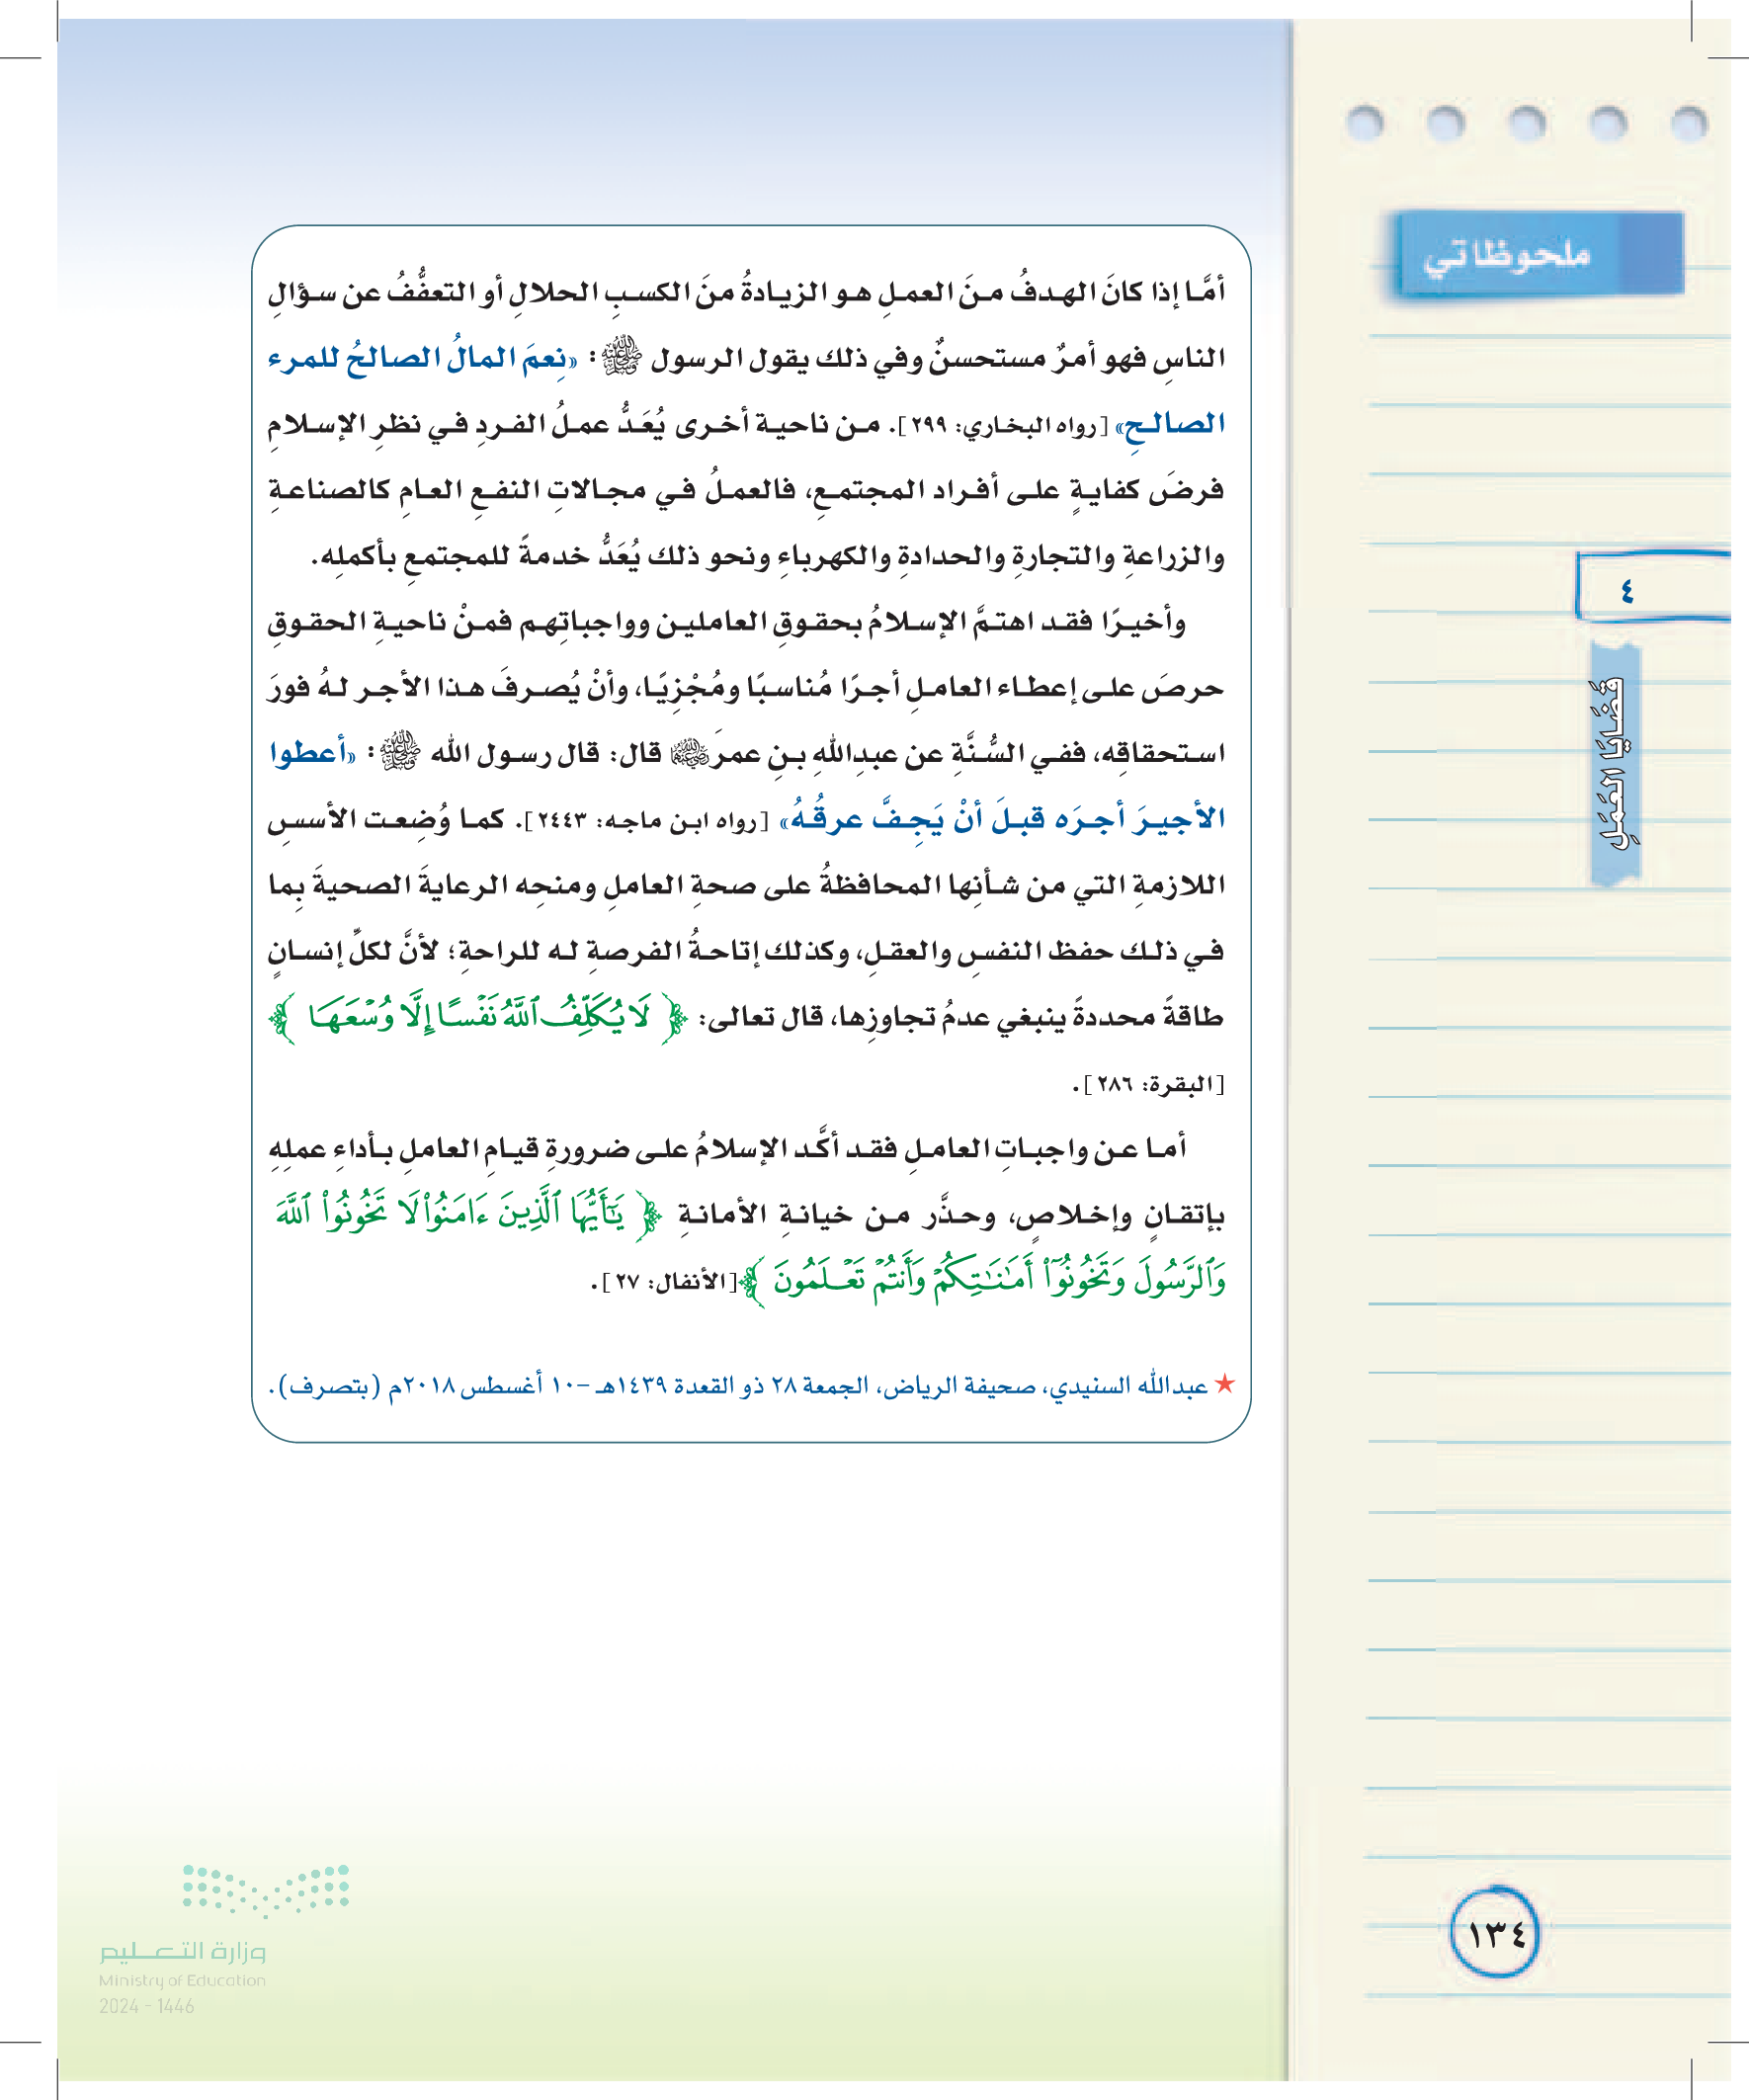 ملحوظاتي
٤
قَضَايَا العَمَلِ
أمَّا إذا كانَ الهدفُ منَ العملِ هو الزيادةُ منَ الكسبِ الحلالِ أو التعفُّفُ عن سؤالِ
الناسِ فهو أمرٌ مستحسنٌ وفي ذلك يقول الرسول ﷺ: «نِعمَ المالُ الصالحُ للمرء
الصالحِ» [رواه البخاري: ٢٩٩]. من ناحية أخرى يُعَدُّ عملُ الفردِ في نظرِ الإسلامِ
فرضَ كفايةٍ على أفراد المجتمعِ، فالعملُ في مجالاتِ النفعِ العامِ كالصناعةِ
والزراعةِ والتجارةِ والحدادةِ والكهرباءِ ونحو ذلك يُعَدُّ خدمةً للمجتمعِ بأكملِه.
وأخيرًا فقد اهتمَّ الإسلامُ بحقوقِ العاملين وواجباتِهم فمنْ ناحيةِ الحقوقِ
حرصَ على إعطاء العاملِ أجرًا مُناسبًا ومُجْزِيًا، وأنْ يُصرفَ هذا الأجر لهُ فورَ
استحقاقِه، ففي السُّنَّةِ عن عبدِاللهِ بنِ عمرَ رضي الله عنهما قال: قال رسول الله ﷺ: «أعطوا
الأجيرَ أجرَه قبلَ أنْ يَجِفَّ عرقُهُ» [رواه ابن ماجه: ٢٤٤٣]. كما وُضِعت الأسسِ
اللازمةِ التي من شأنِها المحافظةُ على صحةِ العاملِ ومنحِه الرعايةَ الصحيةَ بِما
في ذلك حفظ النفسِ والعقلِ، وكذلك إتاحةُ الفرصةِ له للراحةِ؛ لأنَّ لكلِّ إنسانٍ
طاقةً محددةً ينبغي عدمُ تجاوزِها، قال تعالى: ﴿ لَا يُكَلِّفُ ٱللَّهُ نَفۡسًا إِلَّا وُسۡعَهَا ﴾
[البقرة: ٢٨٦].
أما عن واجباتِ العاملِ فقد أكَّد الإسلامُ على ضرورةِ قيامِ العاملِ بأداءِ عملِهِ
بإتقانٍ وإخلاصٍ، وحذَّر من خيانةِ الأمانةِ ﴿ يَٰٓأَيُّهَا ٱلَّذِينَ ءَامَنُواْ لَا تَخُونُواْ ٱللَّهَ
وَٱلرَّسُولَ وَتَخُونُوٓاْ أَمَٰنَٰتِكُمۡ وَأَنتُمۡ تَعۡلَمُونَ ﴾ [الأنفال: ٢٧].
★ عبدالله السنيدي، صحيفة الرياض، الجمعة ٢٨ ذو القعدة ١٤٣٩هـ - ١٠ أغسطس ٢٠١٨م (بتصرف).
١٣٤
وزارة التعليم
Ministry of Education
2024 - 1446